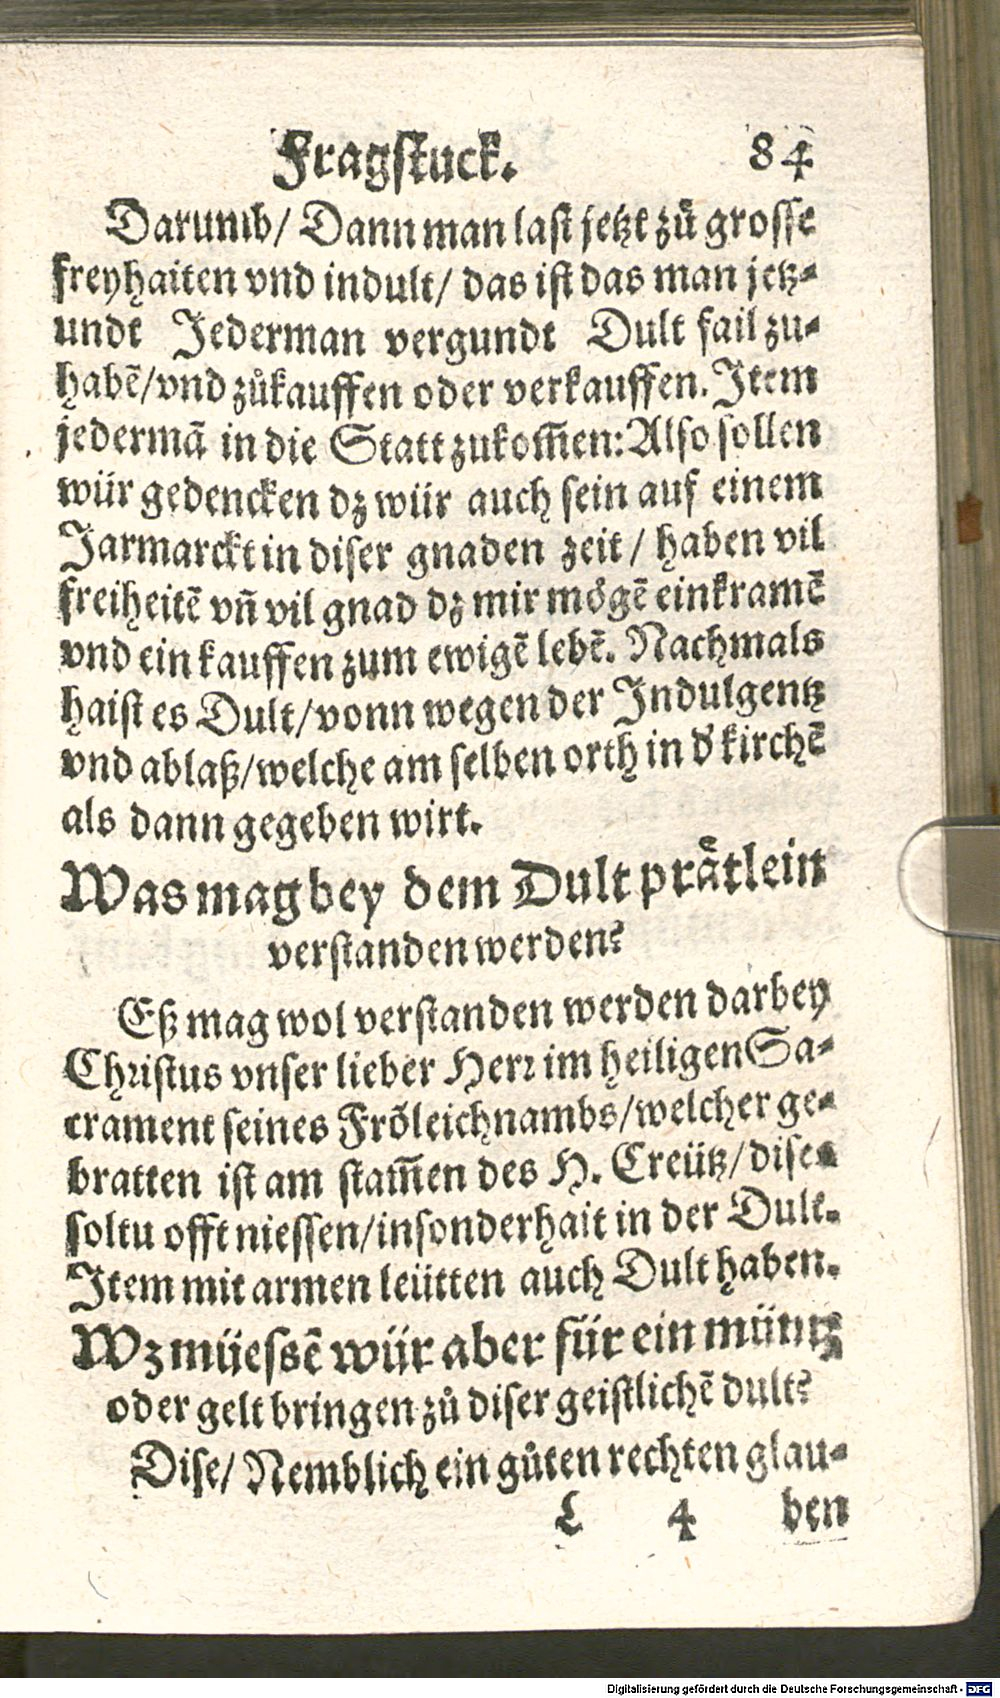 Fragstuck. 84
Darumb/ Dann man last jetzt zů grosse
freyhaiten vnd indult/ das ist das man jetz-
undt Jederman vergundt Dult fail zu-
habẽ/vnd zůkauffen oder verkauffen. Item
jedermã in die Statt zukom̃en: Also sollen
wür gedencken dz wür auch sein auf einem
Jarmarckt in diser gnaden zeit / haben vil
freiheitẽ vñ vil gnad dz mir mögẽ einkramẽ
vnd ein kauffen zum ewigẽ lebẽ. Nachmals
haist es Dult/vonn wegen der Indulgentz
vnd ablaß/welche am selben orth in d' kirchẽ
als dann gegeben wirt.
Was mag bey dem Dult prätlein
verstanden werden?
Eß mag wol verstanden werden darbey
Christus vnser lieber Herr im heiligen Sa-
crament seines Fröleichnambs/welcher ge-
bratten ist am stam̃en des H. Creütz/dise
soltu offt niessen/insonderhait in der Dult.
Item mit armen leütten auch Dult haben.
Wz müessẽ wür aber für ein müntz
oder gelt bringen zů diser geistlichẽ dult?
Dise/ Nemblich ein gůten rechten glau-
L 4 ben
Digitalisierung gefördert durch die Deutsche Forschungsgemeinschaft - DFG